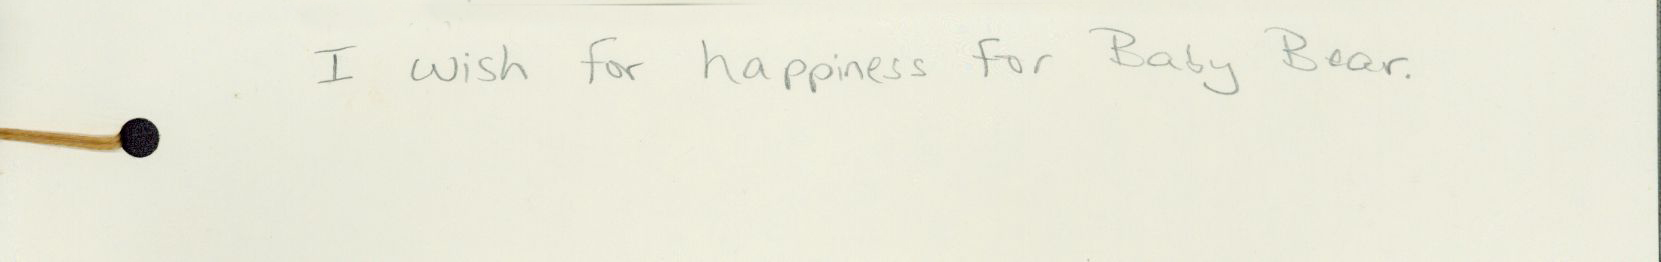 I wish for happiness for Baby Bear.